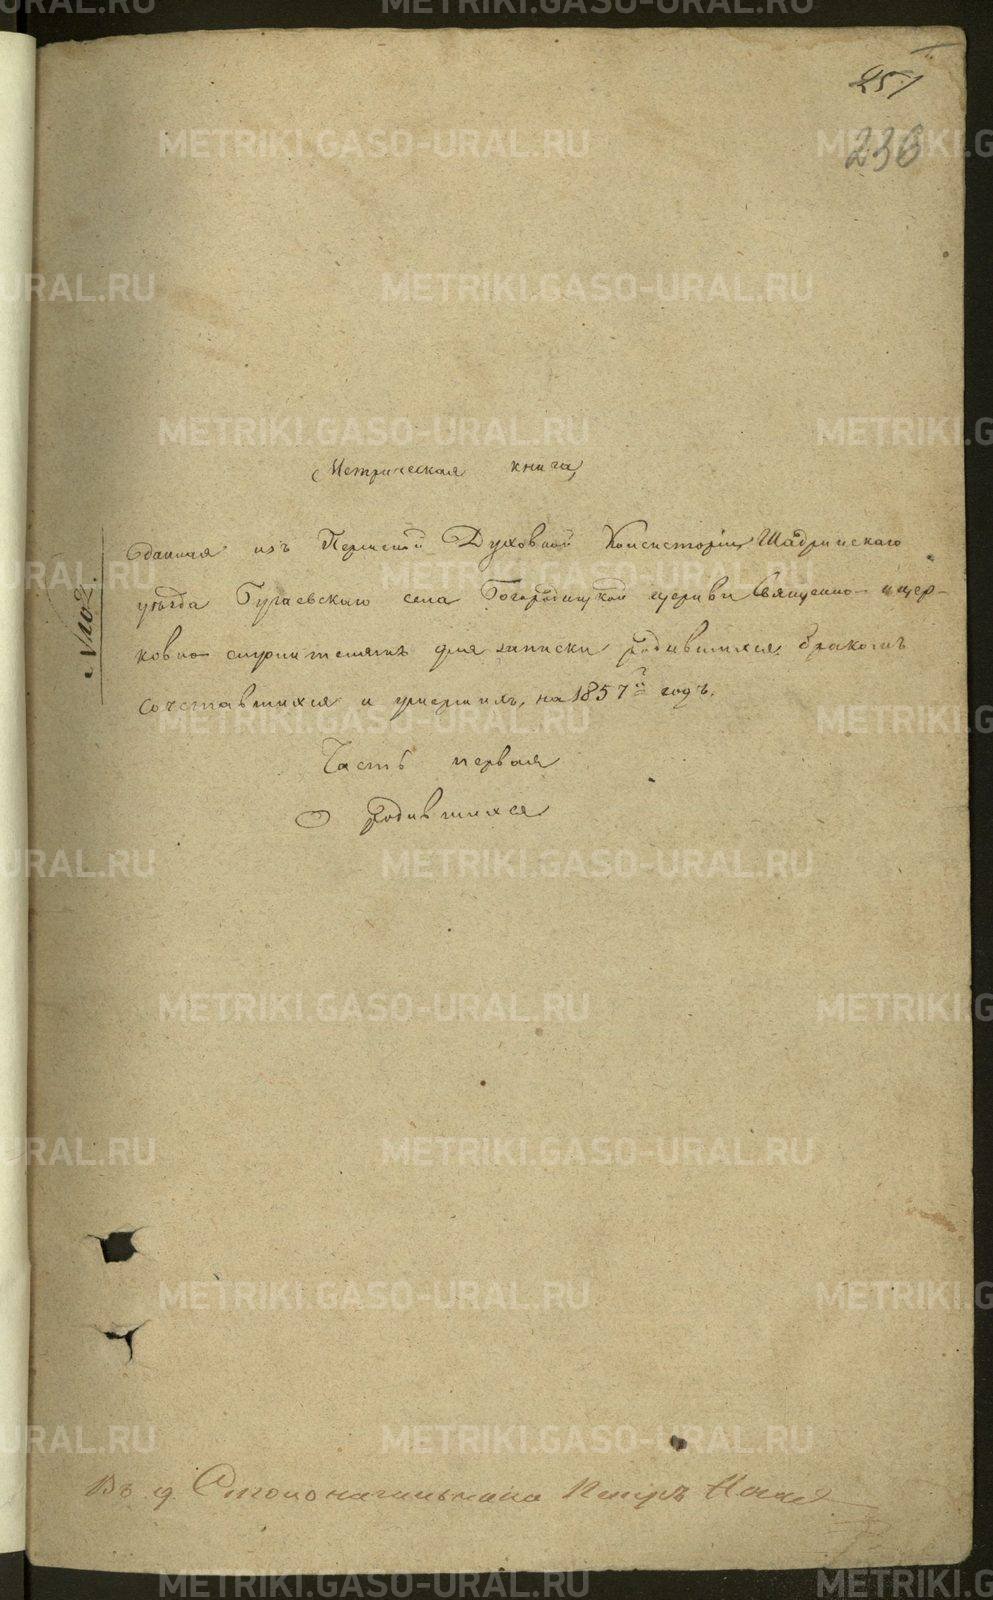 251
236
Метрическая книга,
данная изъ Пермской Духовной Консисторіи Шадринскаго
уѣзда Бугаевскаго села Богородицкой церкви Священно- и цер-
ковно-служителямъ для записки родившихся, бракомъ
сочетавшихся и умершихъ, на 1857й годъ.
Часть первая
О родившихся
№ 102.
Въ д. Столоначальника Петръ
METRIKI.GASO-URAL.RU